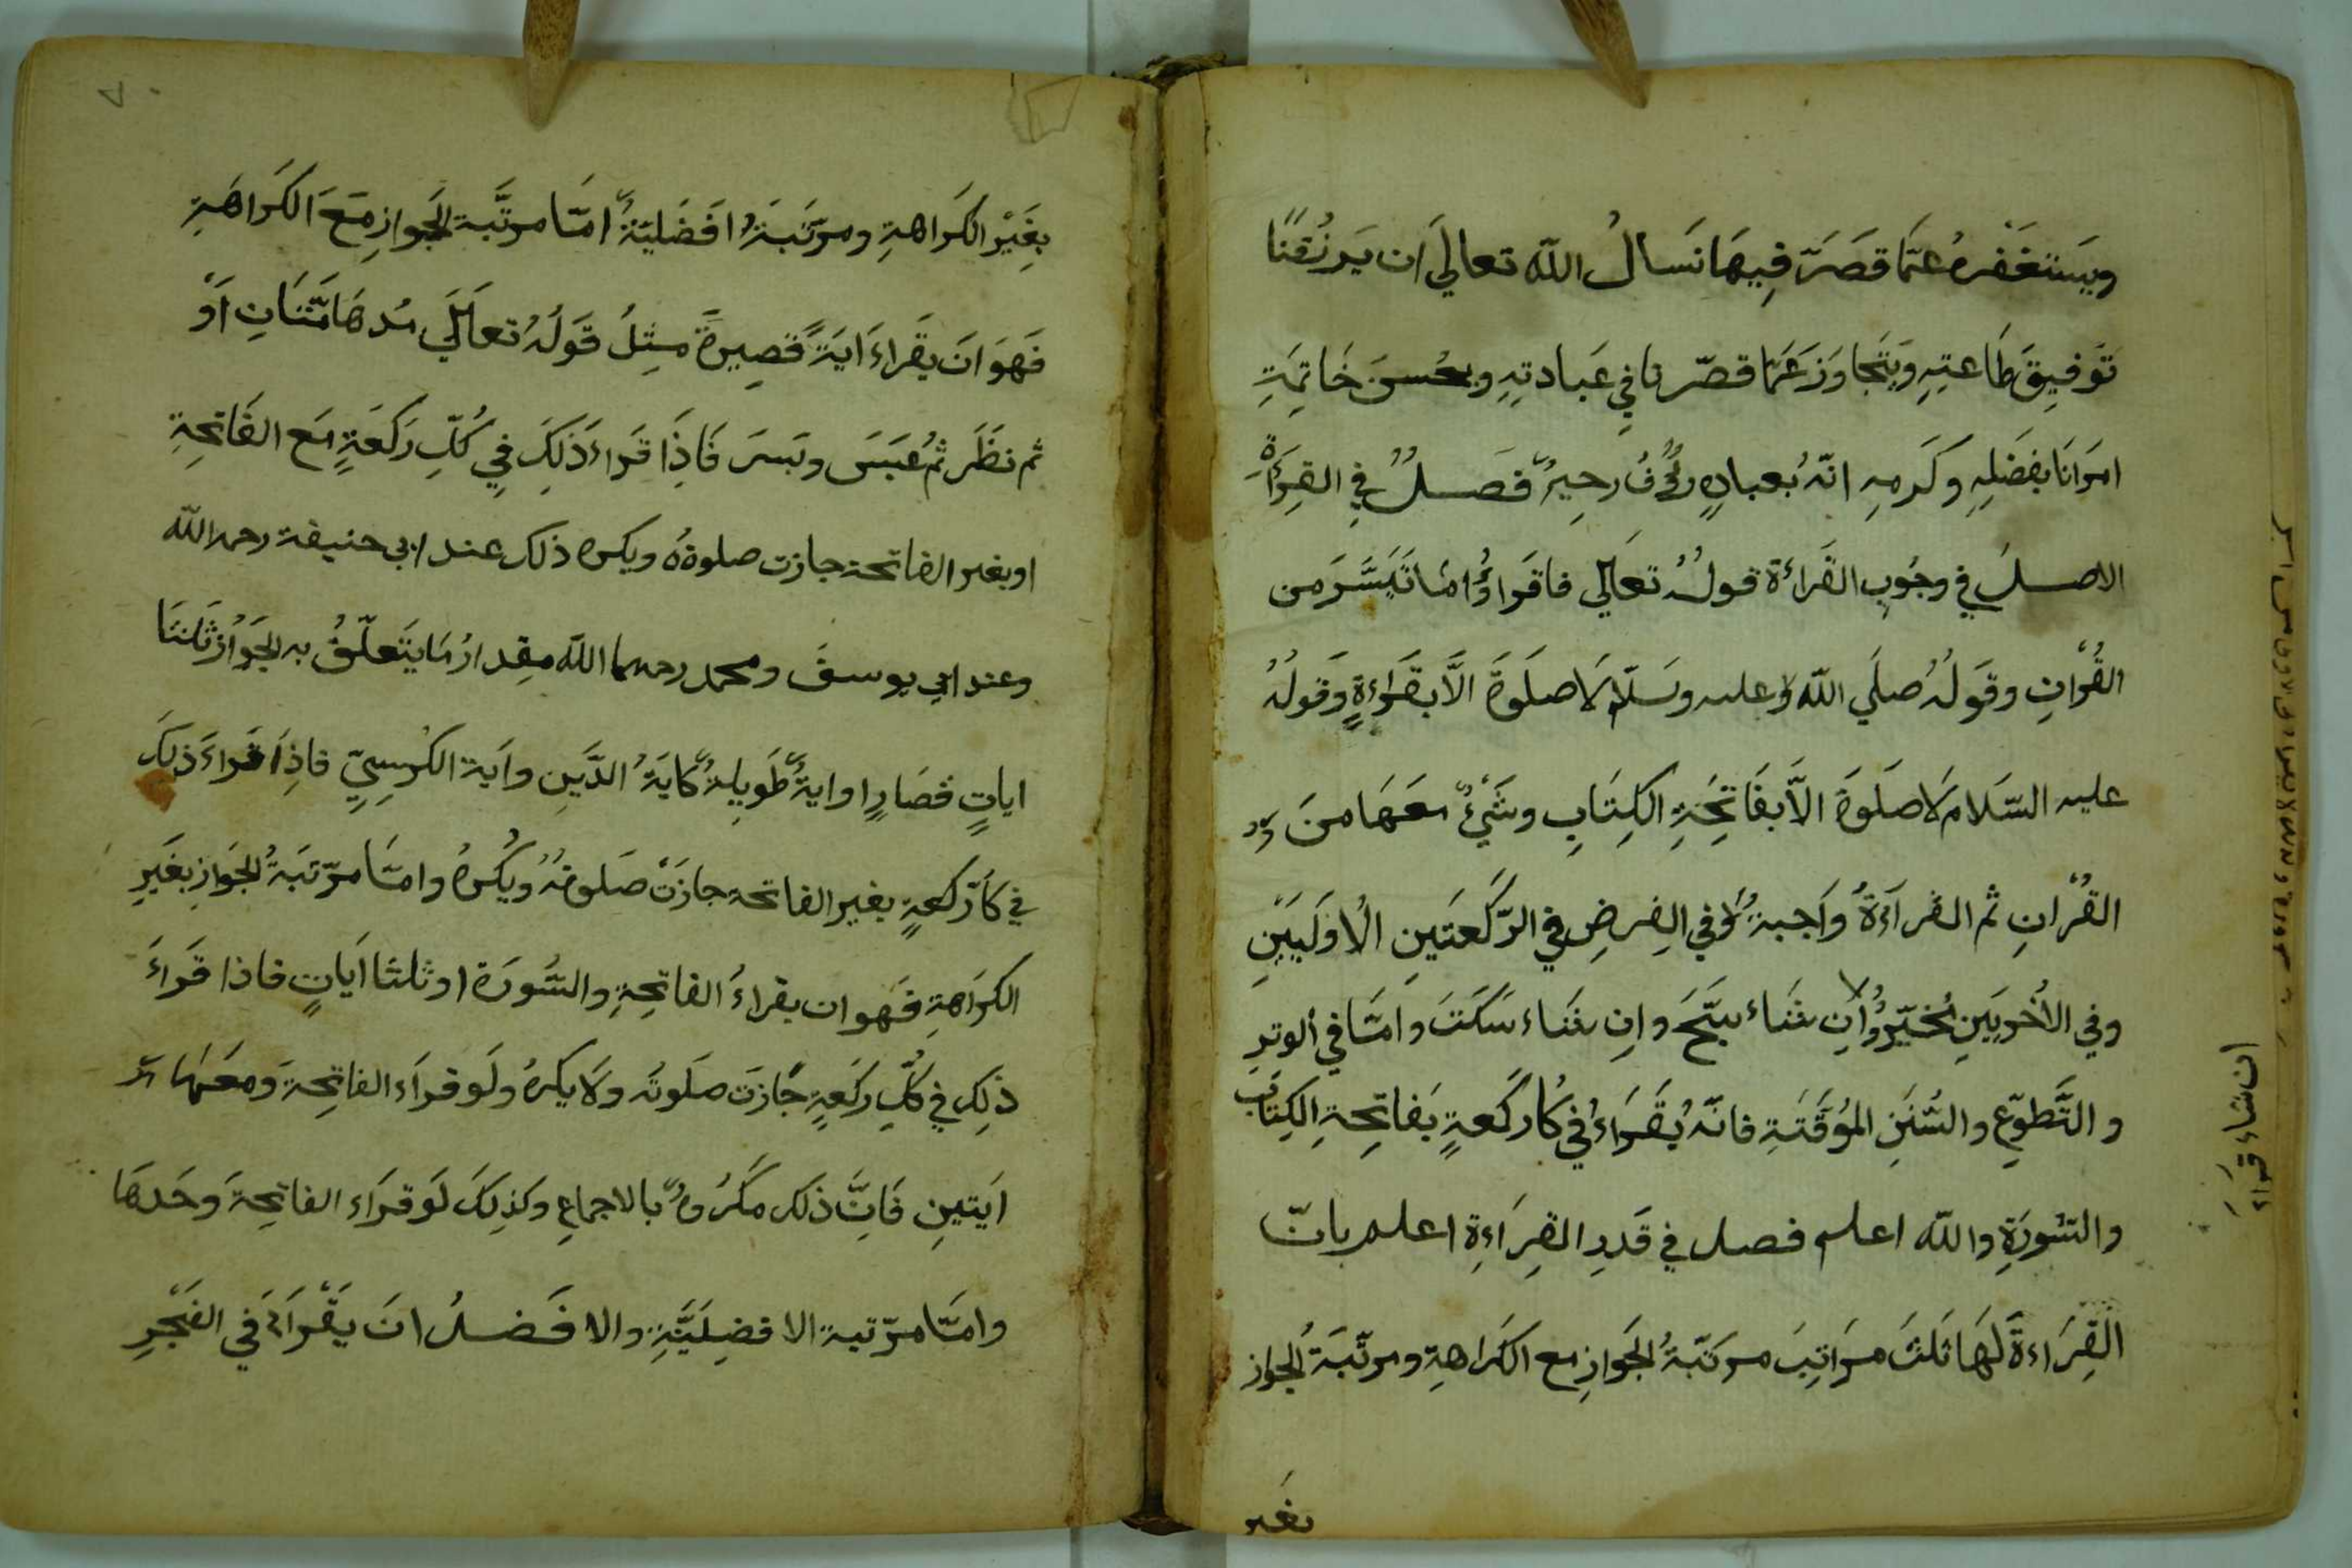 ويستغفره عمّا قصّر فيها نسال الله تعالي ان يرزقنا
توفيق طاعته ويتجاوز عمّا قصّرنا في عبادته ويحسن خاتمة
امرنا بفضله وكرمه انّه بعباده رؤف رحيم فصل في القراءة
الاصل في وجوب القراءة قوله تعالي فاقراؤا ما تيسّر من
القران وقوله صلي الله عليه وسلّم لا صلوة الّا بقراءة وقوله
عليه السّلام لا صلوة الّا بفاتحة الكتاب وشيء معها من
القران ثم القراءة واجبة في الفرض في الرّكعتين الاوليين
وفي الاخريين مخيّر وان شاء سبّح وان شاء سكت وامّا في الوتر
ان شاء قراء
و التّطوّع والسّنن المؤقّتة فانّه يقراء في كل ركعة بفاتحة الكتاب
والسّورة والله اعلم فصل في قدر القراءة اعلم بانّ
القراءة لها ثلث مراتب مرتبة الجواز مع الكراهة ومرتبة الجواز
بغير
٧٠
بغير الكراهة ومرتبة افضليّة امّا مرتبة الجواز مع الكراهة
فهو ان يقراء اية قصيرة مثل قوله تعالي مدهامّتان او
ثم نظر ثم عبس وبسر فاذا قراء ذلك في كلّ ركعة مع الفاتحة
او بغير الفاتحة جازت صلوته ويكره ذلك عند ابي حنيفة رحمه الله
وعند ابي يوسف ومحمد رحمهما الله مقدار ما يتعلّق به الجواز ثلثا
ايات قصار او اية طويلة كاية الدّين واية الكرسيّ فاذا قراء ذلك
في كل ركعة بغير الفاتحة جازت صلوته ويكره وامّا مرتبة الجواز بغير
الكراهة فهو ان يقراء الفاتحة والسّورة او ثلثا ايات فاذا قراء
ذلك في كلّ ركعة جازت صلوته ولا يكره ولو قراء الفاتحة ومعها
ايتين فانّ ذلك مكروه بالاجماع وكذلك لو قراء الفاتحة وحدها
وامّا مرّتبة الافضليّة والافضل ان يقراء في الفجر